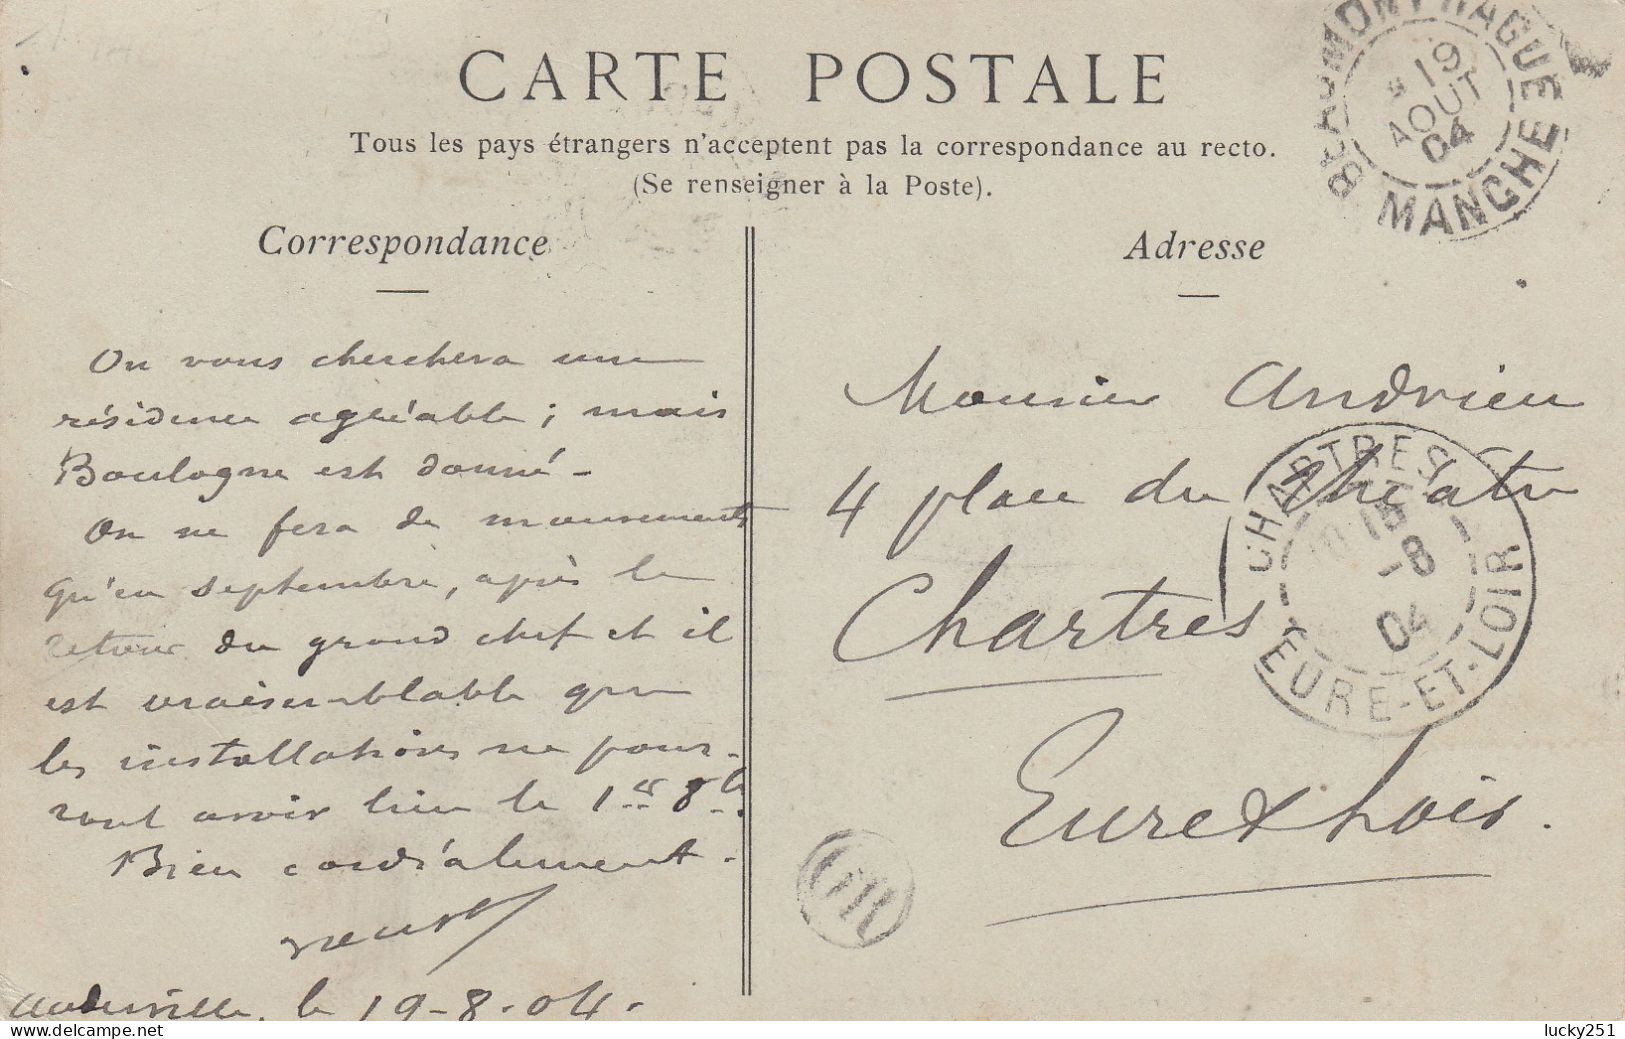 CARTE POSTALE
Tous les pays étrangers n'acceptent pas la correspondance au recto.
(Se renseigner à la Poste).
BEAUMONT HAGUE
19
AOUT
04
MANCHE
Correspondance
On vous cherchera une
résidence agréable ; mais
Boulogne est donné -
On ne fera de mouvements
qu'en septembre, après le
retour du grand chef et il
est vraisemblable que
les installations ne pour-
ront avoir lieu le 1er 8b.
Bien cordialement.
Auderville, le 19-8-04.
Adresse
Monsieur Andrieu
4 place du théâtre
Chartres
Eure & Loir.
CHARTRES
-8
04
EURE-ET-LOIR
lucky251